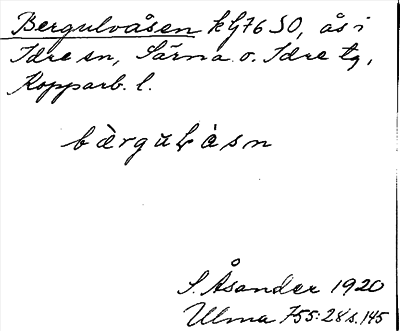 Bergulvåsen k G76 SO, ås i
Idre sn, Särna o. Idre tg,
Kopparb. l.
S. Åsander 1920
Ulma 755:28 s. 145